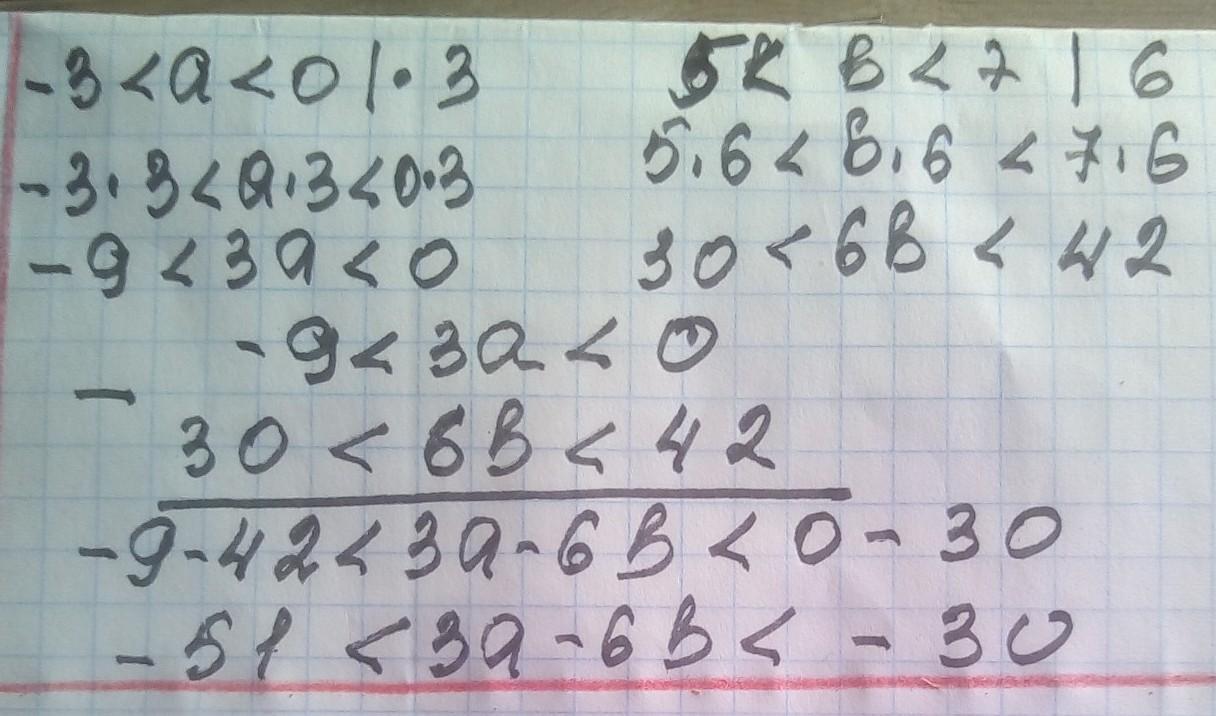 -3 < a < 0 | · 3    5 < в < 7 | 6
-3 · 3 < a · 3 < 0 · 3    5 · 6 < в · 6 < 7 · 6
-9 < 3a < 0    30 < 6в < 42
-9 < 3a < 0
−
30 < 6в < 42
-9 - 42 < 3a - 6в < 0 - 30
-51 < 3a - 6в < -30